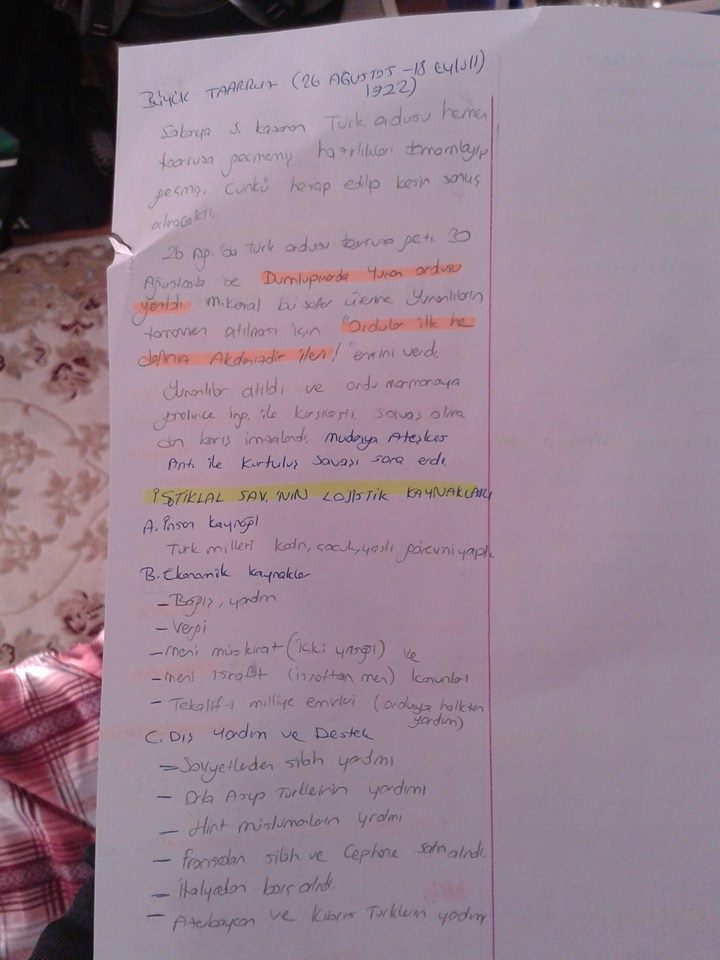 BÜYÜK TAARRUZ (26 AĞUSTOS -18 eylül)
1922)
Sakarya S. kazanan Türk ordusu hemen
taarruza geçmemiş hazırlıkları tamamlayıp
geçmiş. Çünkü hesap edilip kesin sonuç
alınacaktı.
26 Ağ.'da Türk ordusu taarruza geçti. 30
Ağustosta ise Dumlupınarda Yunan ordusu
yenildi. M.Kemal bu zafer üzerine Yunanlıların
tamamen atılması için "Ordular ilk he
definiz Akdenizdir ileri!" emrini verdi.
Yunanlılar atıldı ve ordu marmaraya
yönelince ing. ile karşılaştı. savaş olma
dan barış imzalandı. mudanya Ateşkes
Ant. ile Kurtuluş Savaşı sona erdi.
İSTİKLAL SAV.'NIN LOJİSTİK KAYNAKLARI
A. İnsan kaynağı
Türk milleti kadın, çocuk, yaşlı görevini yaptı.
B. Ekonomik kaynaklar
- Bağış, yardım
- Vergi
- meni müskirat (içki yasağı) ile
- meni israfat (israftan men) kanunları
- Tekalif-i milliye emirleri (orduya halktan
yardım)
C. Dış Yardım ve Destek
- Sovyetlerden silah yardımı
- Orta Asya Türklerinin yardımı
- Hint müslümanların yrdmı
- fransadan silah ve Cephane satın alındı.
- İtalyadan borç alındı.
- Azerbaycan ve Kıbrıs Türklerin yardımı